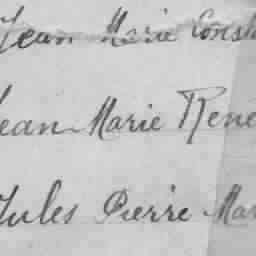 Jean Marie Const
Jean Marie Rene
Jules Pierre Mar